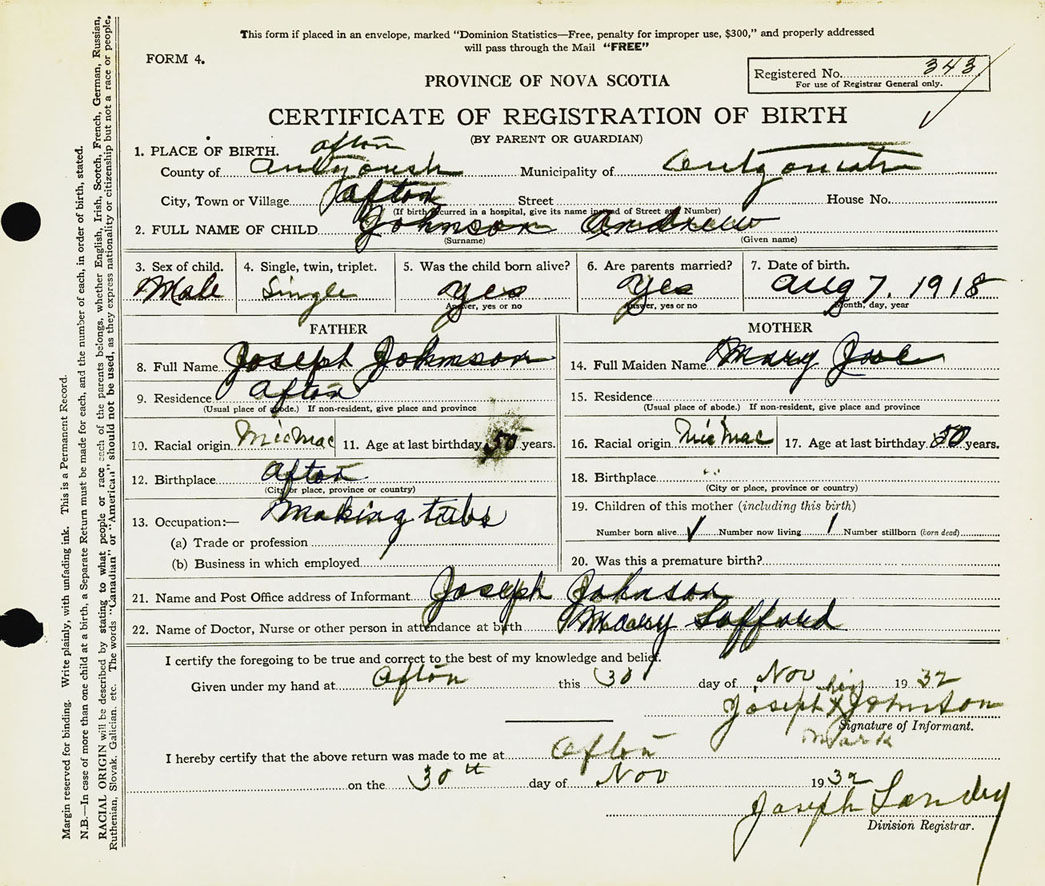 This form if placed in an envelope, marked "Dominion Statistics—Free, penalty for improper use, $300," and properly addressed
will pass through the Mail "FREE"
FORM 4.
Registered No. 343
For use of Registrar General only.
PROVINCE OF NOVA SCOTIA
CERTIFICATE OF REGISTRATION OF BIRTH
(BY PARENT OR GUARDIAN)
1. PLACE OF BIRTH. Afton
County of Municipality of
City, Town or Village Afton Street House No.
(If birth occurred in a hospital, give its name instead of Street and Number)
2. FULL NAME OF CHILD Johnson Andrew
(Surname) (Given name)
3. Sex of child. 4. Single, twin, triplet. 5. Was the child born alive? 6. Are parents married? 7. Date of birth.
Male Single Yes Yes Aug 7. 1918
Answer, yes or no Answer, yes or no Month, day, year
FATHER MOTHER
8. Full Name Joseph Johnson 14. Full Maiden Name Mary
9. Residence Afton 15. Residence
(Usual place of abode.) If non-resident, give place and province (Usual place of abode.) If non-resident, give place and province
10. Racial origin MicMac 11. Age at last birthday 50 years. 16. Racial origin MicMac 17. Age at last birthday 50 years.
12. Birthplace Afton 18. Birthplace "
(City or place, province or country) (City or place, province or country)
13. Occupation:— Making tubs 19. Children of this mother (including this birth)
(a) Trade or profession Number born alive Number now living 1 Number stillborn (born dead)
(b) Business in which employed 20. Was this a premature birth?
21. Name and Post Office address of Informant Joseph Johnson
22. Name of Doctor, Nurse or other person in attendance at birth Mary
I certify the foregoing to be true and correct to the best of my knowledge and belief.
Given under my hand at Afton this 30 day of Nov 1932
his
Joseph X Johnson
Signature of Informant.
mark
I hereby certify that the above return was made to me at Afton
on the 30th day of Nov 1932
Joseph Landry
Division Registrar.
Margin reserved for binding. Write plainly, with unfading ink. This is a Permanent Record.
N.B.—In case of more than one child at a birth, a Separate Return must be made for each, and the number of each, in order of birth, stated.
RACIAL ORIGIN will be described by stating to what people or race each of the parents belongs, whether English, Irish, Scotch, French, German, Russian,
Ruthenian, Slovak, Galician, etc. The words "Canadian" or "American" should not be used, as they express nationality or citizenship but not a race or people.